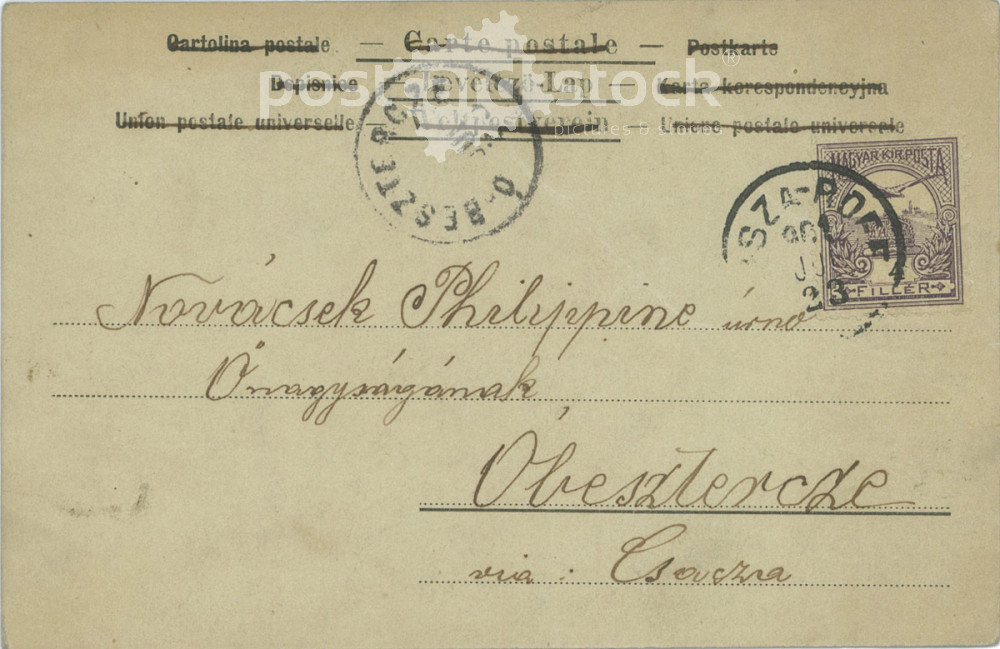 Cartolina postale — Carte postale — Postkarte
Dopisnice — Levelező-Lap — Karta korespondencyjna
Union postale universelle — Weltpostverein — Unione postale universale
Ó-BESZTERCZE
MAGYAR KIR. POSTA
FILLÉR
23
4
Novácsek Philippine úrnő
Őnagyságának
Óbesztercze
via : Csacza